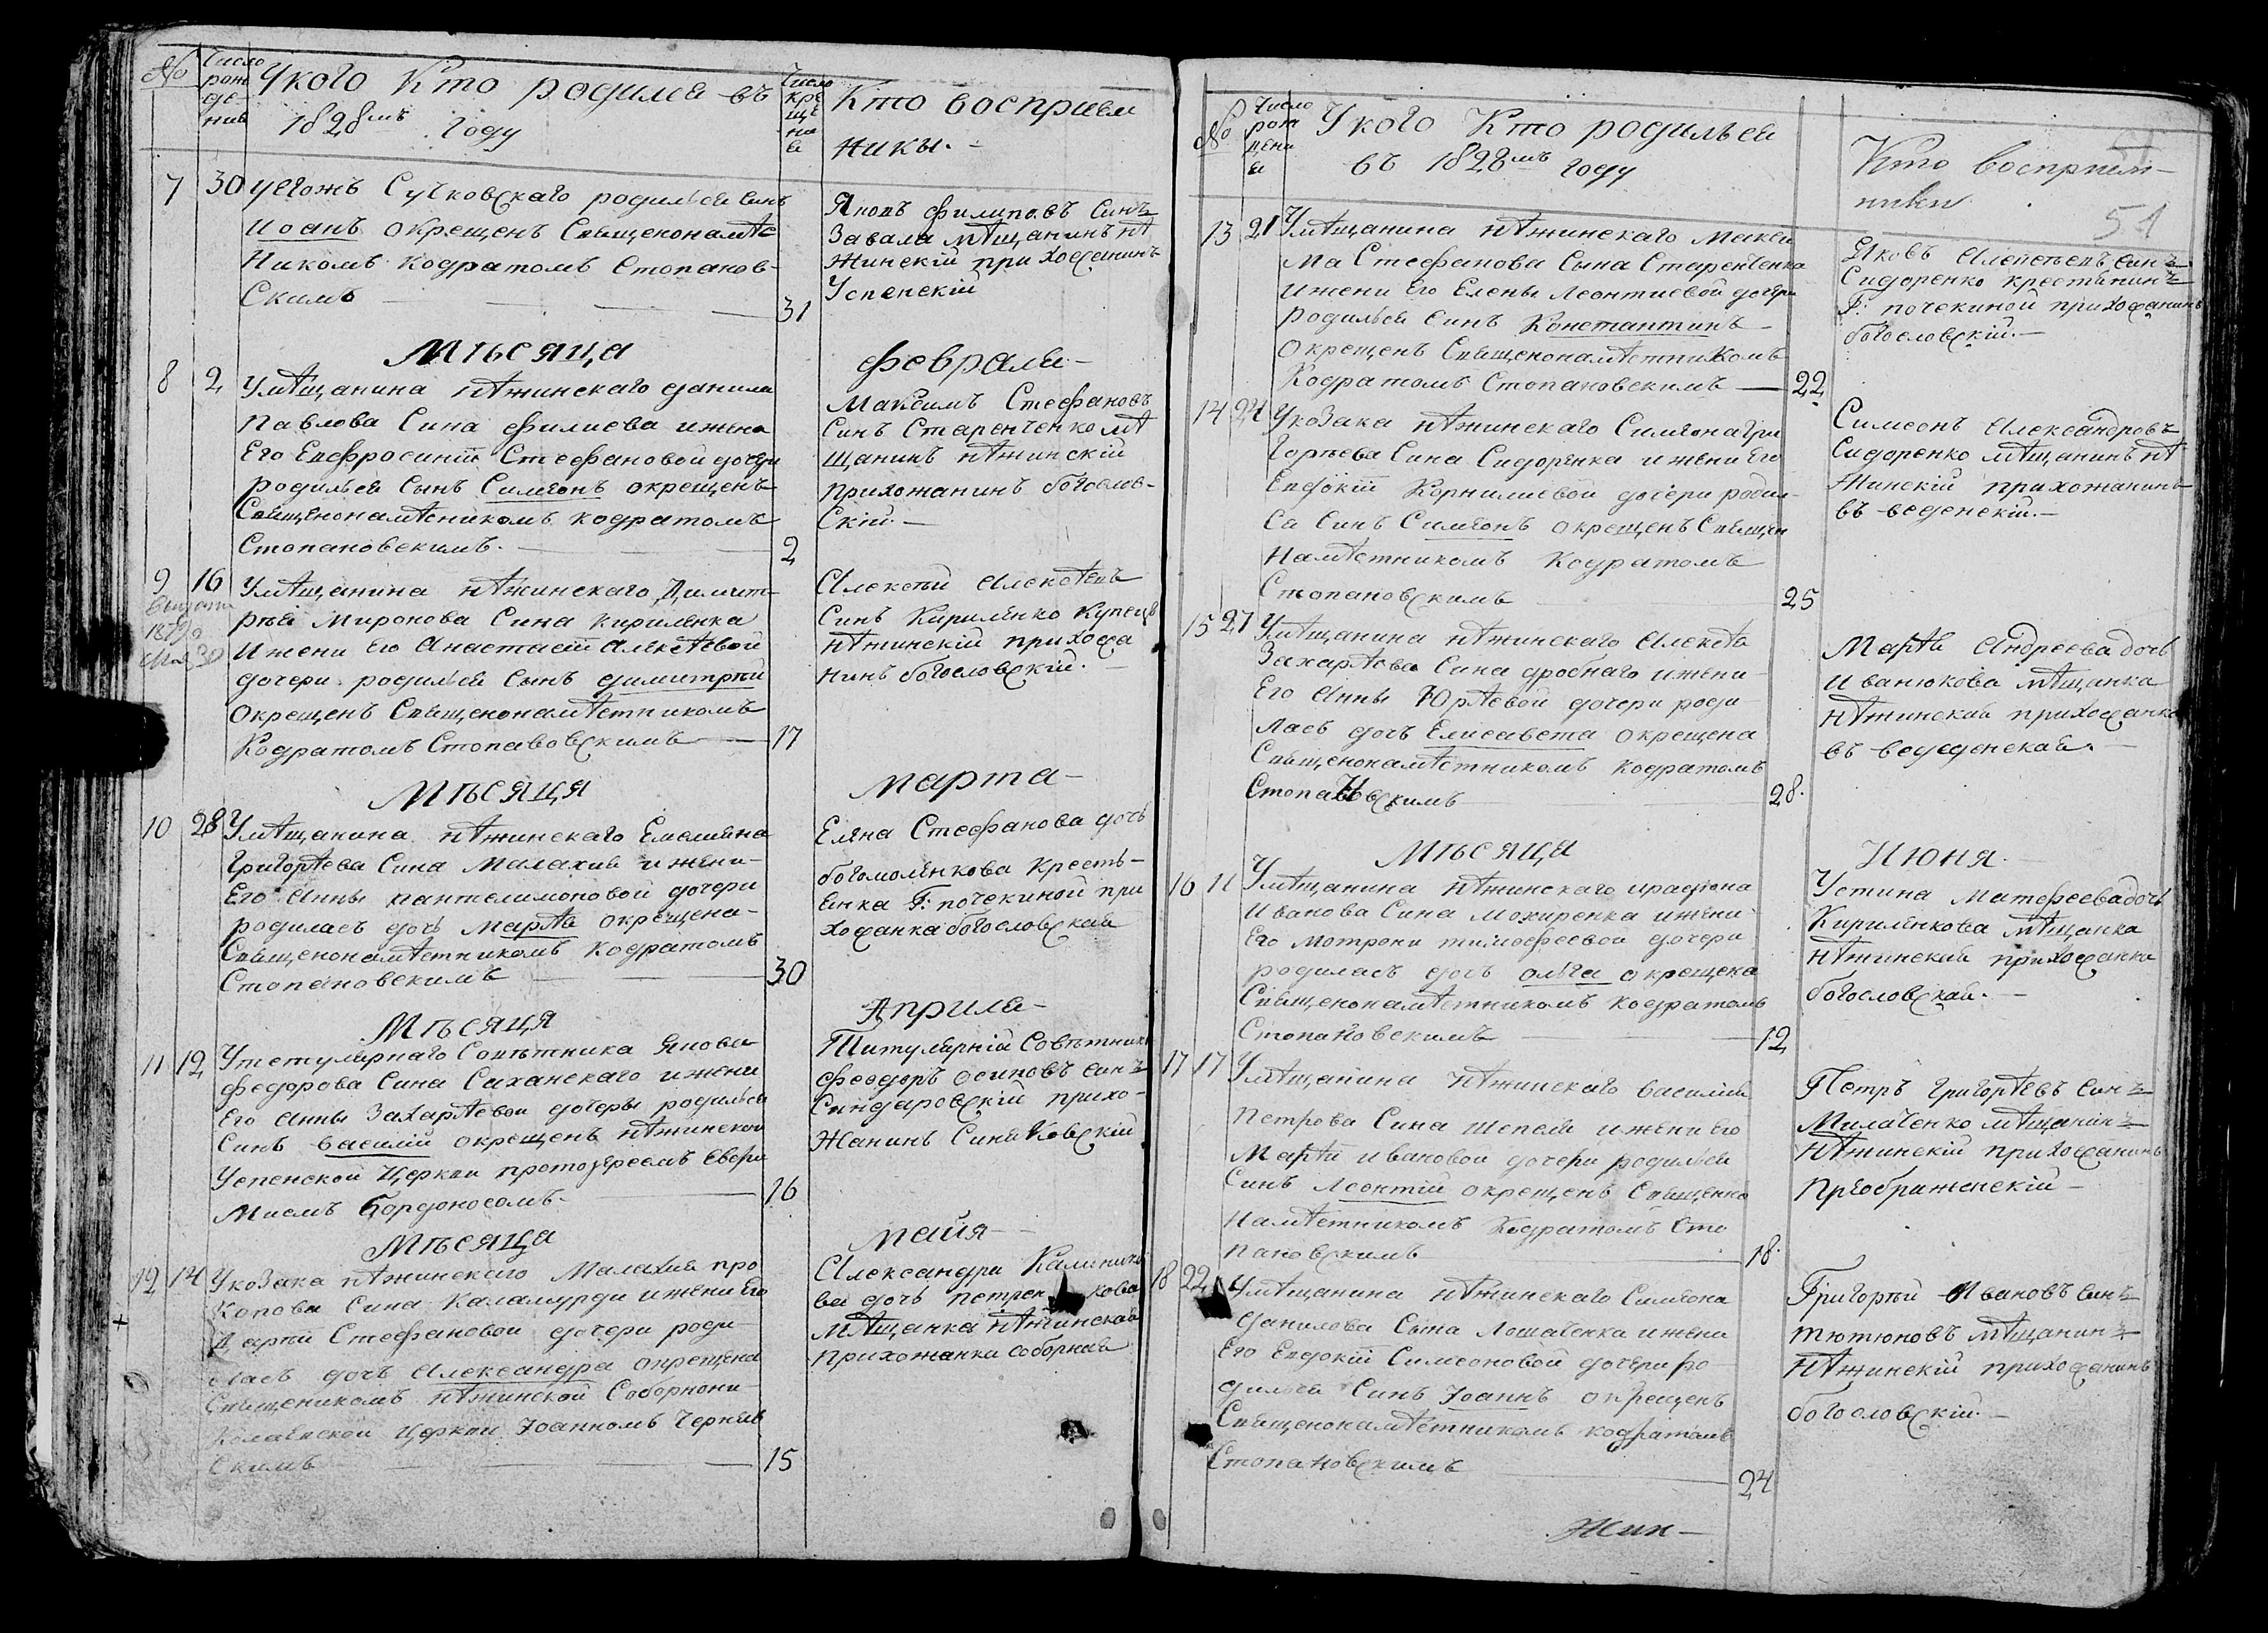 №
Число рожденив
Укого Кто родился въ
1828мъ году
Число крещения
Кто восприем
ники.
7 30 уегожъ Сучковскаго родилься Синъ
Иоанъ окрещенъ Священонамѣс
Никомъ Кодратомъ Стопанов-
Скимъ 31
Яковъ филиповъ Синъ
Завала мѣщанинъ нѣ
Жинскій прихожанинъ
Успенскій
Мѣсяца Февраля
8 2 Умѣщанина нѣжинскаго данила
Павлова Сина филиева ижени
Его Евфросиніи Стефановой дочери
родилься Сынъ Симеонъ окрещенъ
Священонамѣсникомъ кодратомъ
Стопановскимъ. 2
Максимъ Стефановъ
Синъ Старенченко мѣ
Щанинъ нѣжинскій
прихожанинъ богослов-
Скій.
9 16 Умѣщанина нѣжинскаго Димит-
рія Миронова Сина кириленка
Ижени Его Анастасіи Алексѣевой
дочери родилься Сынъ димитрій
Окрещенъ Священонамѣстникомъ
Кодратомъ Стопавовскимъ 17
Алексѣй Алексѣевъ
Синъ Кириленко Купецъ
нѣжинскій прихожа
нинъ богословскій.
Мѣсяца марта
10 28 Умѣщанина нѣжинскаго Емелияна
Григорѣева Сина Малахия ижени
Его Анны пантелимоновой дочери
родилась дочъ Марѳа окрещена
Священонамѣстникомъ Кодратомъ
Стопановскимъ 30
Елена Стефанова дочъ
богомоленкова Кресть-
янка Г: почекиной при
хожанка богословская
Мѣсяца Априля
11 12 Утетулярнаго Совѣтника Якова
федорова Сина Саханскаго ижени
Его Анны Захарѣевой дочеры родилься
Синъ василій окрещенъ нѣжинской
Успенской Церкви протоіереемъ Евфи
Миемъ Бордоносомъ. 16
Титулярній Совѣтникъ
Феодоръ осиповъ син
Сандаровскій прихо-
Жанинъ Синяковскій
Мѣсяца майя
12 14 Укозака нѣжинскаго Малахия про
Копова Сина Каламурди ижени Его
Дарѣи Стефановой дочери роди
лась дочъ Александра окрещена
Священикомъ нѣжинской Соборнони
Колаевской Церкви Іоанномъ Черняв
Скимъ 15
Александра
ва дочъ петрен кова
мѣщанка нѣжинская
прихожанка соборная
51
№
Укого Кто родилься
въ 1828мъ году
Кто восприем-
ники
13 21 Умѣщанина нѣжинскаго Макси
Ма Стефанова Сына Старенченка
Ижени Его Елены Леонтиевой дочери
Родилься Синъ Константинъ
Окрещенъ Священонамѣстникомъ
Кодратомъ Стопановскимъ 22
Яковъ Алексѣевъ син
Сидоренко крестянин
Г: почекиной прихожанинъ
богословскій.
14 24 Укозака нѣжинскаго Симеона Гри
Горѣева Сина Сидоренка ижени Его
Евдокіи Корнилиевой дочери родил-
Са Синъ Симеонъ окрещенъ Священ
Намѣстникомъ Кодратомъ
Стопановскимъ 25
Симеонъ Александровъ
Сидоренко мѣщанинъ нѣ
Жинскій прихожанинъ
въ веденскій.
15 27 Умѣщанина нѣжинскаго Алексѣа
Захарѣева Сина дробнаго ижени
Его Анны Юрѣевой дочери роди
лась дочъ Елисавета окрещена
Священонамѣстникомъ кодратомъ
Стопановскимъ 28.
Марѳа Андреева дочъ
Иванюкова мѣщанка
нѣжинская прихожанка
въ веденская.
Мѣсяца Июня.
16 11 Умѣщанина нѣжинскаго
Иванова Сина Мохиренка ижени
Его мотрони тимофеевой дочери
родилась дочъ олга окрещена
Священонамѣстникомъ кодратомъ
Стопановскимъ 12
Устина Матфеева дочъ
Кириленкова мѣщанка
нѣжинская прихожанка
богословская.
17 17 Умѣщанина нѣжинскаго василия
Петрова Сина шепеля ижени Его
Марѳи ивановой дочери родилься
Синъ Леонтій окрещенъ Священно
намѣстникомъ Кодратомъ Сто
пановскимъ 18.
Петръ григорѣевъ син
Милаченко мѣщанин
нѣжинскій прихожанинъ
преображенскій
18 22 Умѣщанина нѣжинскаго Симеона
данилова Сына Лошаченка ижени
Его Евдокіи Симеоновой дочери ро
дилься Синъ Іоаннъ окрещенъ
Священонамѣстникомъ кодратомъ
Стопановскимъ 24
Григорѣй Ивановъ син
тютюновъ мѣщанин
нѣжинскій прихожанинъ
богословскій.
Жин